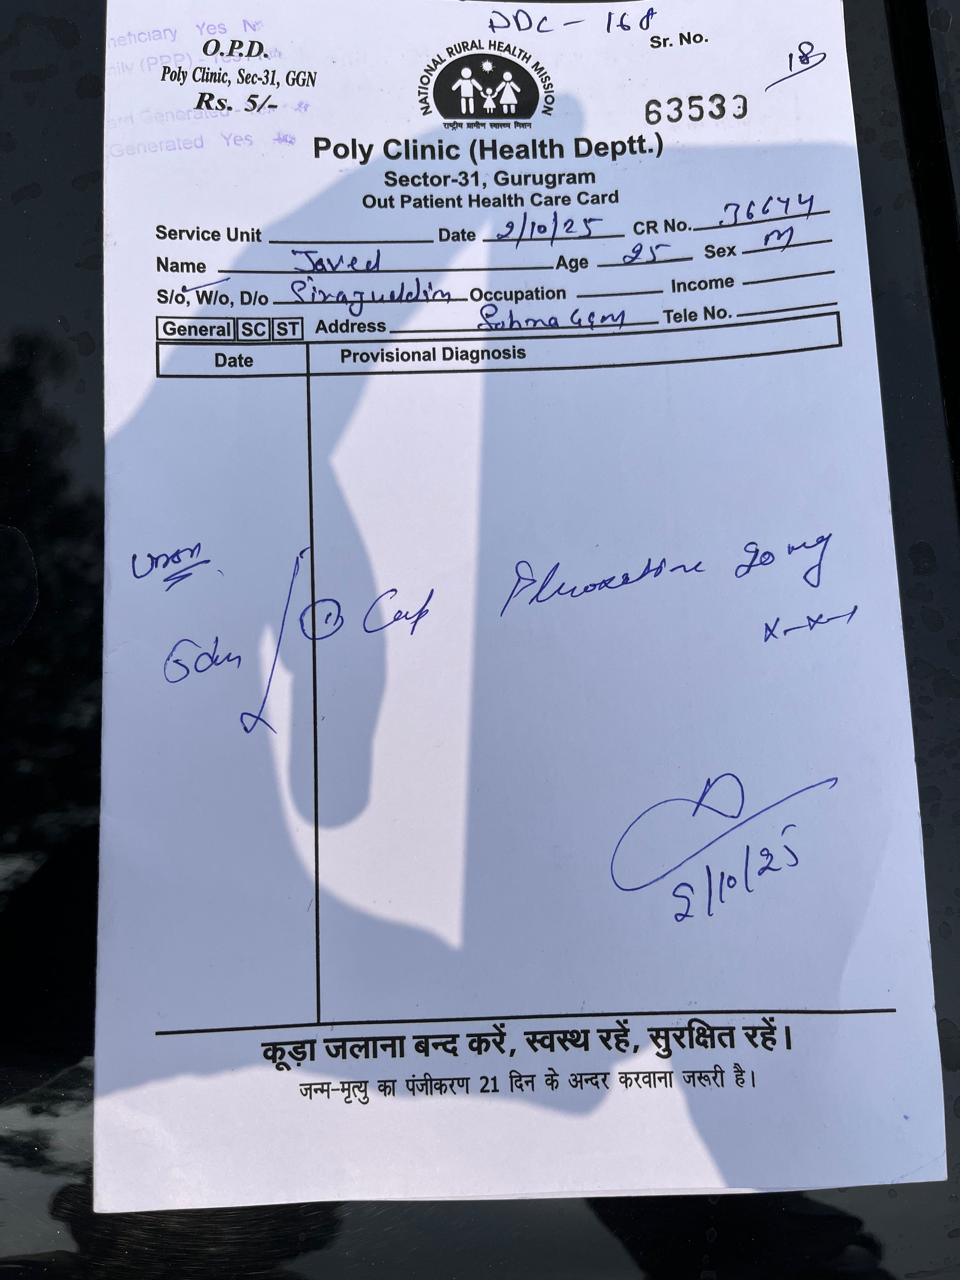 DDC - 168
neficiary Yes No
O.P.D.
Poly Clinic, Sec-31, GGN
Rs. 5/-
Generated Yes No
NATIONAL RURAL HEALTH MISSION
राष्ट्रीय ग्रामीण स्वास्थ्य मिशन
Sr. No.
18
63533
Poly Clinic (Health Deptt.)
Sector-31, Gurugram
Out Patient Health Care Card
Service Unit Date 2/10/25 CR No. 36644
Name Javed Age 25 Sex M
S/o, W/o, D/o Sirajueddin Occupation Income
General SC ST Address Tele No.
Date Provisional Diagnosis
① Cap Fluoxetine 20 mg
x-x-1
2/10/25
कूड़ा जलाना बन्द करें, स्वस्थ रहें, सुरक्षित रहें।
जन्म-मृत्यु का पंजीकरण 21 दिन के अन्दर करवाना जरूरी है।